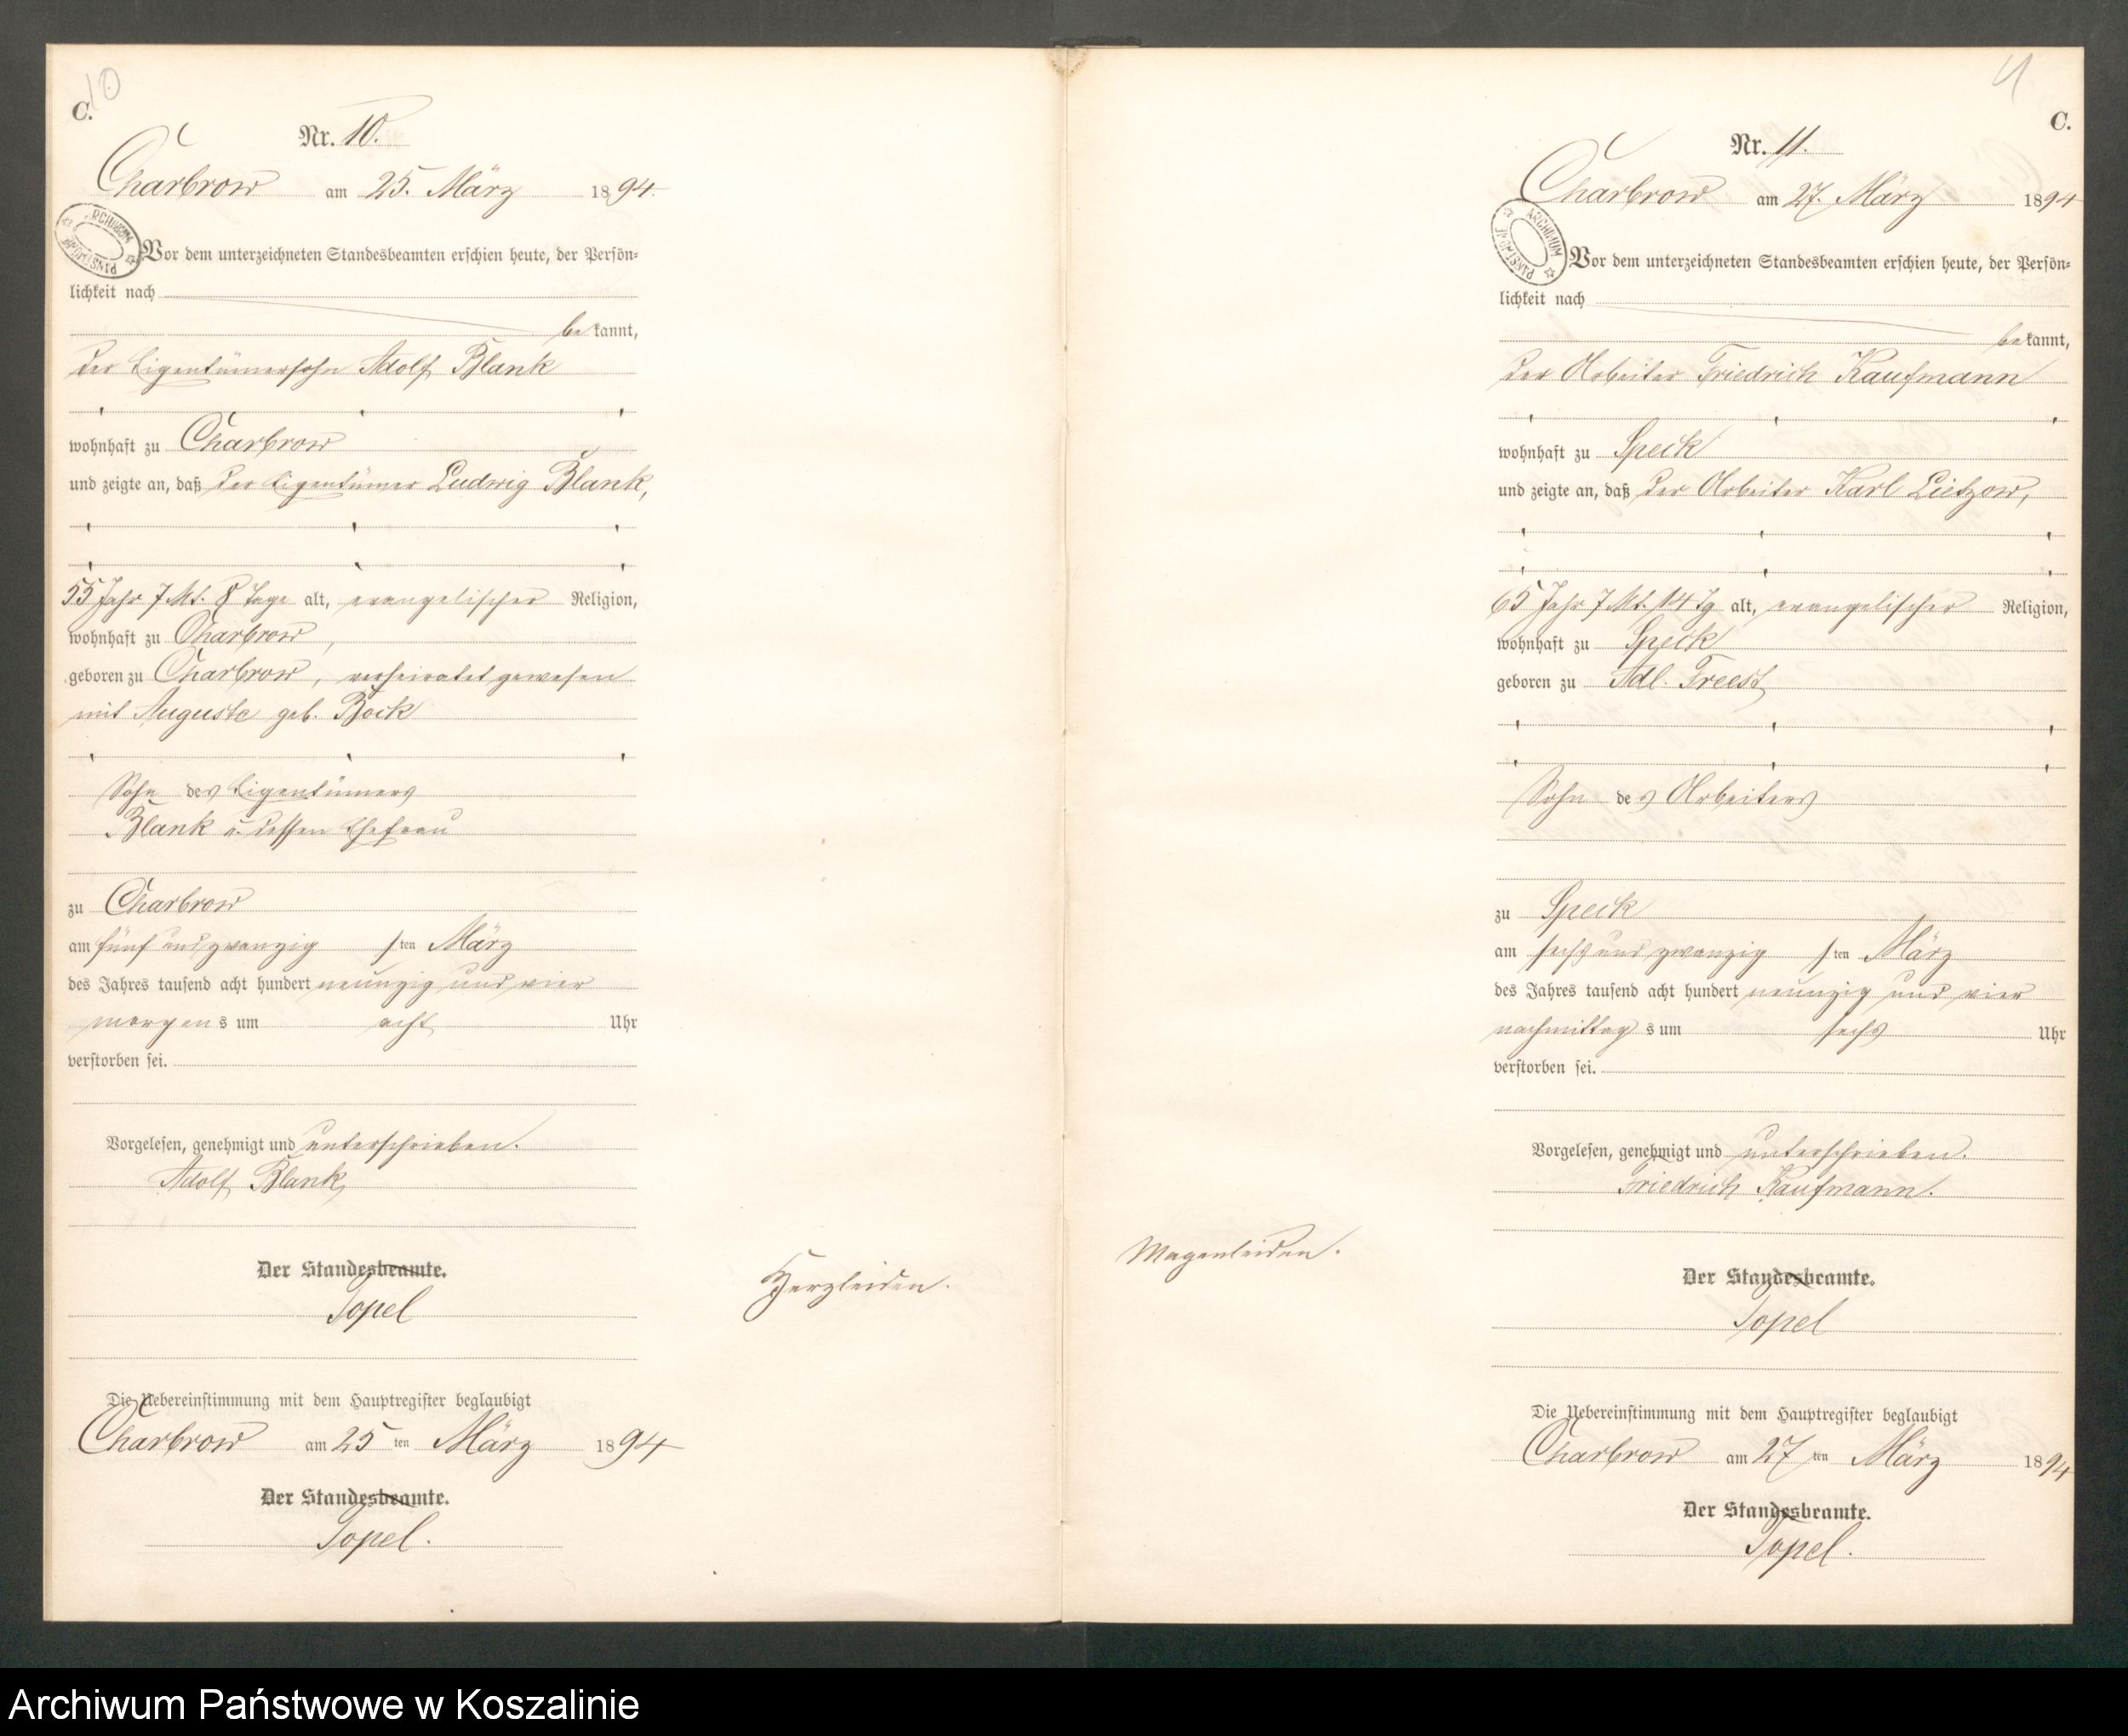 10
C.
Nr. 10.
Charbrow am 25. März 1894.
ARCHIWUM PAŃSTWOWE
Vor dem unterzeichneten Standesbeamten erschien heute, der Persön-
lichkeit nach
bekannt,
der Eigentümersohn Adolf Blank
wohnhaft zu Charbrow
und zeigte an, daß der Eigentümer Ludwig Blank,
55 Jahr 7 Mt. 8 Tage alt, evangelischer Religion,
wohnhaft zu Charbrow,
geboren zu Charbrow, verheiratet gewesen
mit Auguste geb. Bock
Sohn des Eigentümers
Blank u. dessen Ehefrau
zu Charbrow
am fünf und zwanzigsten März
des Jahres tausend acht hundert neunzig und vier
morgens um acht Uhr
verstorben sei.
Vorgelesen, genehmigt und unterschrieben.
Adolf Blank
Der Standesbeamte.
Topel
Herzleiden.
Die Uebereinstimmung mit dem Hauptregister beglaubigt
Charbrow am 25ten März 1894
Der Standesbeamte.
Topel.
C.
Nr. 11.
Charbrow am 27. März 1894
ARCHIWUM PAŃSTWOWE
Vor dem unterzeichneten Standesbeamten erschien heute, der Persön-
lichkeit nach
bekannt,
der Arbeiter Friedrich Kaufmann
wohnhaft zu Speck
und zeigte an, daß der Arbeiter Karl Lietzow,
65 Jahr 7 Mt. 14 Tg alt, evangelischer Religion,
wohnhaft zu Speck
geboren zu Adl. Freest
Sohn des Arbeiters
zu Speck
am sechs und zwanzigsten März
des Jahres tausend acht hundert neunzig und vier
nachmittags um sechs Uhr
verstorben sei.
Vorgelesen, genehmigt und unterschrieben.
Friedrich Kaufmann.
Magenleiden.
Der Standesbeamte.
Topel
Die Uebereinstimmung mit dem Hauptregister beglaubigt
Charbrow am 27ten März 1894
Der Standesbeamte.
Topel.
Archiwum Państwowe w Koszalinie